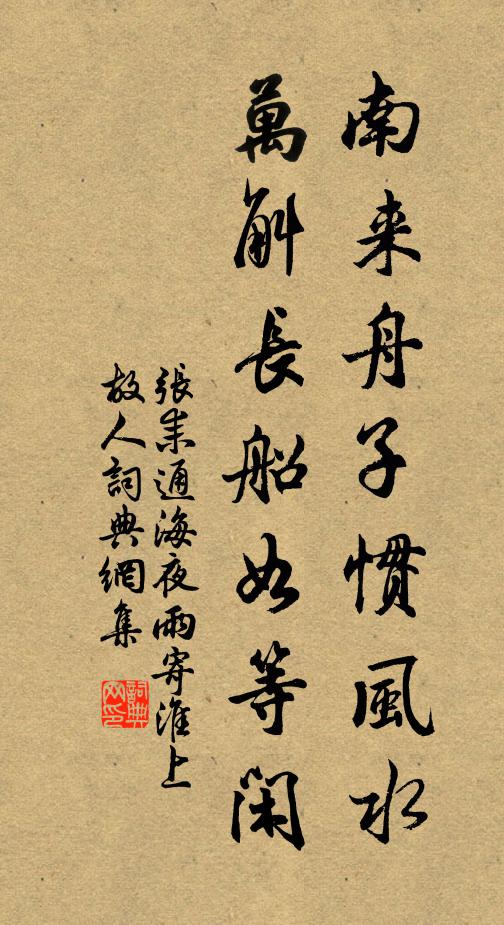 南来舟子慣風水
萬斛長船如等閑
張耒通海夜雨寄淮上
故人詞典網集
詞典
网印